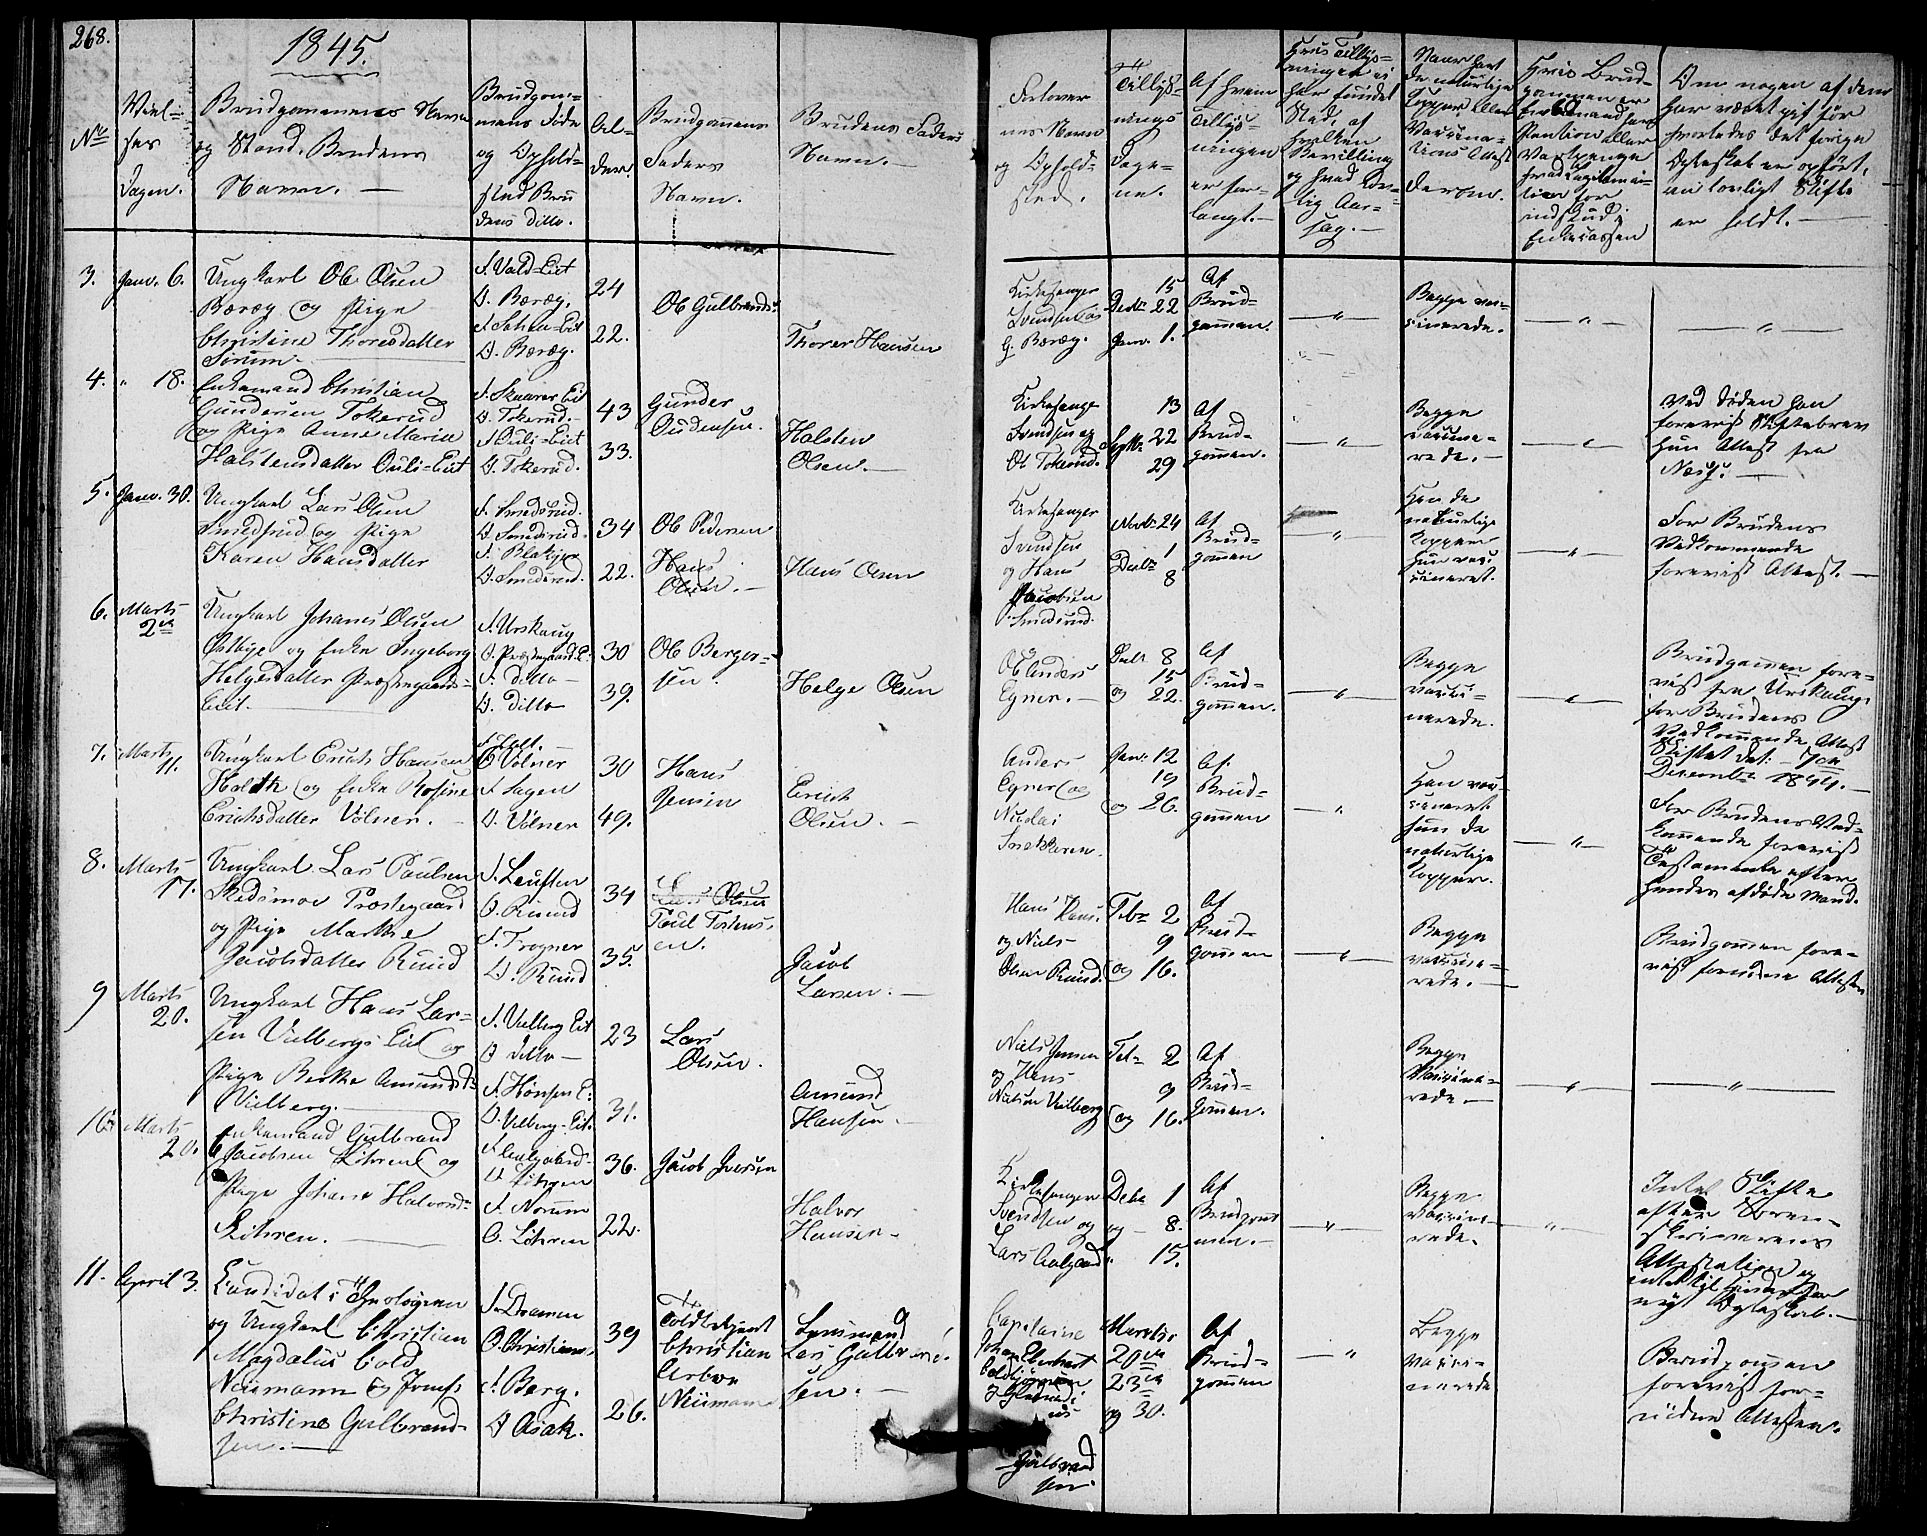 268.
1845.
No
Viel-
ses
Dagen.
Brudgommens Navn
og Stand. Brudens
Navn. —
Brudgom-
mens Føde
og Ophold-
sted Bru
dens ditto.
Al-
der.
Brudgommens
Faders
Navn.
Brudens Faders
Navn. —
Forlover
nes Navn
og Ophold-
sted.
Tillys-
nings
Dage-
ne.
Af hvem
Tillys-
ningen
er for-
langt. —
Hvis Tillys-
ningen ei
har fundet
Sted, af
hvilken
Bevilling
og hvad lov-
lig Aar-
sag. —
Naar havt
de naturlige
Kopper, eller
Vaccina-
tions Attest
derom.
Hvis Brud-
gommen er
Om nogen af dem
har været gift før
hvorledes det forrige
Ægteskab er ophørt,
om lovligt Skifte
er holdt. —
3. Janv. 6.
Ungkarl Ole Olsen
Beræg og Pige
Christine Thoresdatter
Sørum.
f. Vold-Eiet
O. Beræg.
O. Beræg.
24
22.
Ole Gulbrands.
Thorer Hansen
Kirkesanger
Svendsen og
G. Beræg.
15
Decbr 22
Janv. 1.
Af
Brud-
gommen.
— " —
Begge vac-
cinerede.
— " —
— " —
4. " 18.
Enkemand Christian
Gundersen Tokerud
og Pige Anne Marie
Halstensdatter Ouli-Eiet
f. Skaarer Eiet
O. Tokerud.
f. Ouli-Eiet
O. Tokerud.
43
33.
Gunder
Oudensen.
Halsten
Olsen. —
Kirkesanger
Svendsen og
Ole Tokerud.
13
Septbr 22
29
Af
Brud-
gommen.
— " —
Begge
vaccine-
rede. —
— " —
Ved Døden han
forevist Skiftebrev
hun Attest fra
Næs. —
5. Janv. 30.
Ungkarl Lars Olsen
Smedsrud og Pige
Karen Hansdatter
f. Smedsrud.
O. Smedsrud.
f. Blakjer
O. Smedsrud.
34
22.
Ole Pedersen
Hans
Olsen. —
Hans Olsen
Kirkesanger
Svendsen
og Hans
Jacobsen
Smedsrud.
Novbr 24
Decbr 1
8
Af
Brud-
gommen
— " —
Han de
naturlige
Kopper
hun vac-
cineret.
— " —
For Brudens
Vedkommende
forevist Attest. —
6. Marts
2den
Ungkarl Johannes Olsen
Østbye og Enke Ingeborg
Helgesdatter Præstegaards-
Eiet.
f. Urskoug
O. Præstegaards E.
f. Ditto —
O. Ditto
30
39.
Ole Berger-
sen.
Helge Olsen
Ole Anders
Egner. —
Decbr 8
15
og 22.
Af
Brud-
gommen.
— " —
Begge
vacci-
nerede.
— " —
Brudgommen fore-
vist fra Urskoug,
for Brudens
Vedkommende Attest
Skiftet det. 7de
December 1844. —
7. Marts
11.
Ungkarl Erich Hansen
Holdte og Enke Rosine
Erichsdatter Völner. —
f. Holt.
O. Völner
f. Hagen
O. Völner
30
49.
Hans
Jensen
Erich
Olsen. —
Anders
Egner og
Nicolai
Snekkeren.
Janv. 12
19
og 26.
Af
Brud-
gommen
— " —
Han vac-
cineret
hun de
naturlige
Kopper.
— " —
For Brudens Ved-
kommende forevist
Testamente efter
hendes afdøde Mand.
8. Marts
17.
Ungkarl Lars Paulsen
Skedsmoe Præstegaard
og Pige Marthe
Jacobsdatter Ruud
f. Leuften
O. Ruud
f. Frogner
O. Ruud
34
35.
Lars Olsen
Poul Torkens-
en.
Jacob
Larsen. —
Hans Hans.
og Niels
Olsen Ruud.
Febr 2
9
og 16.
Af
Brud-
gommen
— " —
Begge
vaccine-
rede. —
Brudgommen fore-
vist fornødne Attester
9 Marts
20.
Ungkarl Hans Lar-
sen Vielbergs Eiet og
Pige Berthe Amundsd:
Vielberg.
f. Vielberg Eiet
O ditto —
f. Hønsen E:
O. Vielberg-Eiet.
23
31.
Lars
Olsen.
Amund
Hansen. —
Niels Jensen
og Hans
Nielsen Vielberg
Feb. 2
9
og 16.
Af
Brud-
gommen.
— " —
Begge
Vaccine-
rede. —
— " —
— " —
10. Marts
20.
Enkemand Gulbrand
Jacobsen Löhren og
Pige Johanne Halvorsd-
Löhren. —
O Löhren
f. Norum
O. Löhren
36.
22.
Jacob Iversen
Halvor
Hansen. —
Kirkesanger
Svendsen og
Lars Aalgaard.
Decbr 1
og — 8.
15.
Af
Brudgom
men. —
— " —
Begge
Vaccine-
rede.
— " —
Intet Skifte
efter Soren-
skriverens
Attestation og
intet til Hinder for
nyt Ægteskab. —
11. April 3.
Candidat i Theologien
og Ungkarl Christian
Magdalus Cold
Neumann og Jomf:
Christine Gulbrand-
sen. —
f. Dramen
O. Christiania
f. Berg.
O Asak.
39
26.
Toldbetjent
Christian
Neumann
Lensmand
Lars Gulbrand-
sen. —
Capitaine
Johan Eberhart
Gulbrand
sen.
Martz
20de
23de
og 30.
Af
Brud-
gommen
— "
Begge
Vacci-
nerede
Brudgommen
forevist for-
nødne Attester.